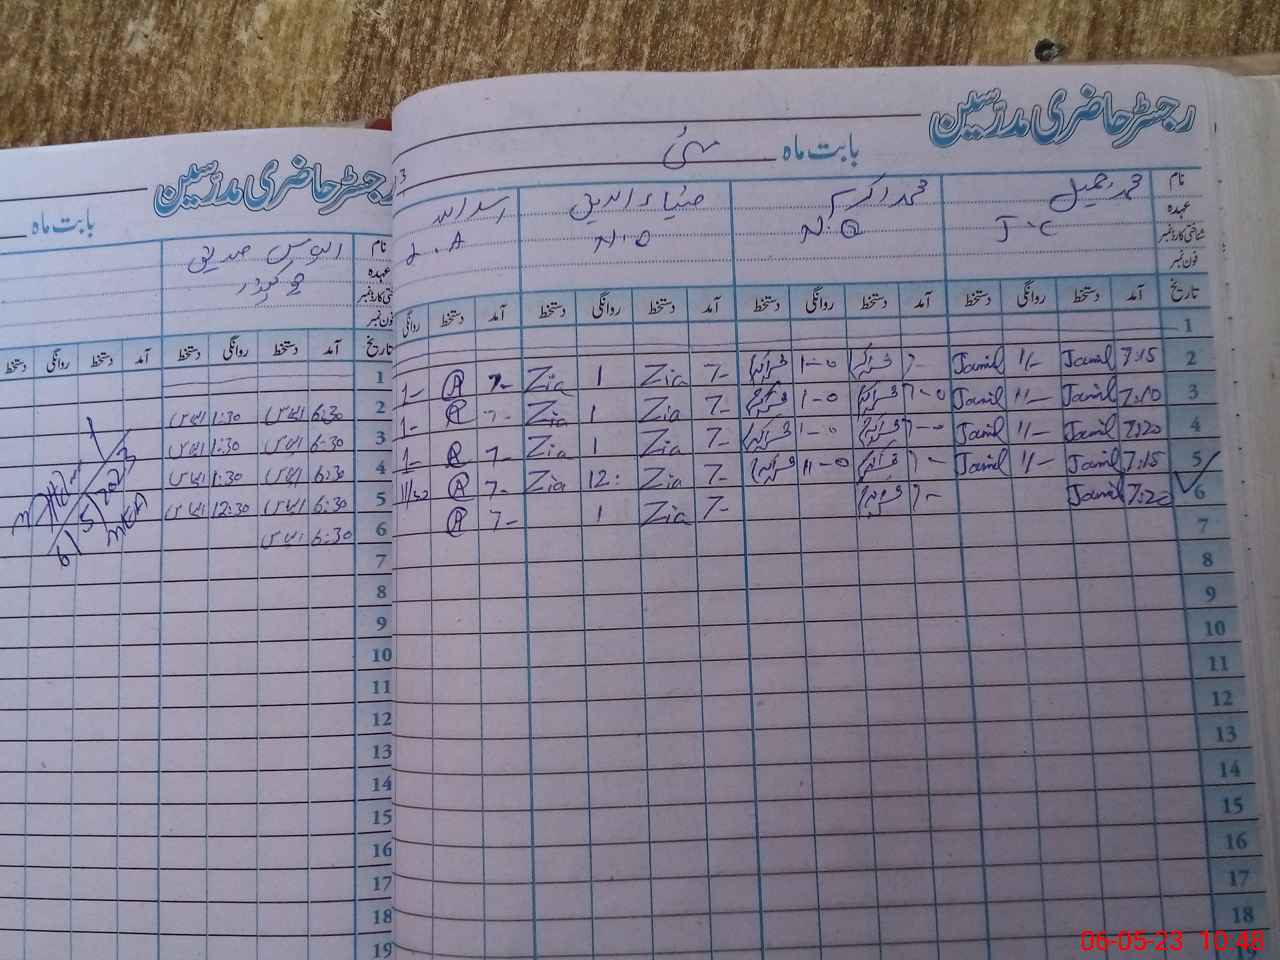 رجسٹر حاضری مدرسین
بابت ماہ مئی
نام محمد جمیل محمد اکرم ضیاء الدین اسد اللہ
عہدہ J.C N.Q N.Q L.A
شناختی کارڈ نمبر
فون نمبر
تاریخ آمد دستخط روانگی دستخط آمد دستخط روانگی دستخط آمد دستخط روانگی دستخط آمد دستخط روانگی
1
2 7:15 Jamil 11- Jamil 7- 1-0 7- Zia 1 Zia 7- A 1-
3 7:10 Jamil 11- Jamil 7-0 1-0 7- Zia 1 Zia 7- A 1-
4 7:20 Jamil 11- Jamil 7-0 1-0 7- Zia 1 Zia 7- A 1-
5 7:15 Jamil 11- Jamil 7- 11-0 7- Zia 12: Zia 7- A 11/30
6 7:20 Jamil 7- 7- Zia 1 7- A
7
8
9
10
11
12
13
14
15
16
17
18
19
رجسٹر حاضری مدرسین
بابت ماہ
نام الیاس صدیق
عہدہ چوکیدار
شناختی کارڈ نمبر
فون نمبر
تاریخ آمد دستخط روانگی دستخط آمد دستخط روانگی دستخط
1
2 6:30 الیاس 1:30 الیاس
3 6:30 الیاس 1:30 الیاس
4 6:30 الیاس 1:30 الیاس
5 6:30 الیاس 12:30 الیاس
6 6:30 الیاس
7
8
9
10
11
12
13
14
15
16
17
18
19
6/5/2023
MEA
06-05-23 10:48